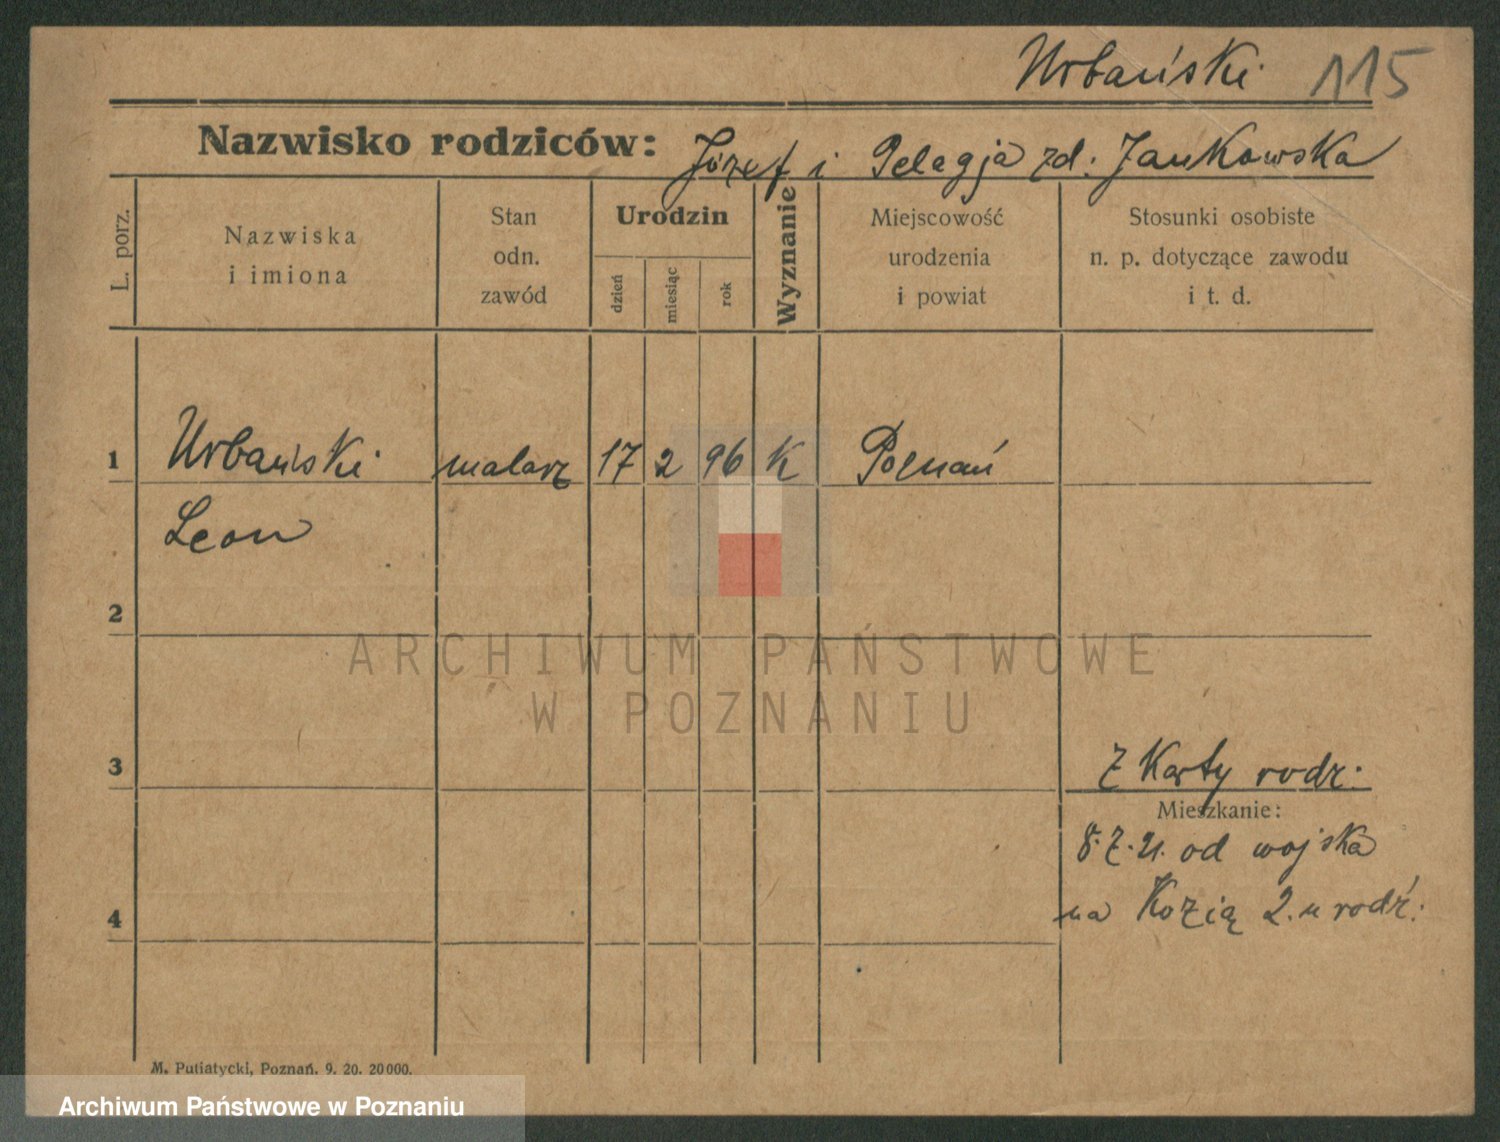 Urbański 115
Nazwisko rodziców: Józef i Pelagja zd. Jankowska
L. porz.
Nazwiska
i imiona
Stan
odn.
zawód
Urodzin
dzień
miesiąc
rok
Wyznanie
Miejscowość
urodzenia
i powiat
Stosunki osobiste
n. p. dotyczące zawodu
i t. d.
1 Urbański malarz 17 2 96 K Poznań
Leon
2
3
z Karty rodz.
Mieszkanie:
8.7.21. od wojska
na Kozią 2. u rodź.
4
M. Putiatycki, Poznań. 9. 20. 20000.
ARCHIWUM PAŃSTWOWE
W POZNANIU
Archiwum Państwowe w Poznaniu